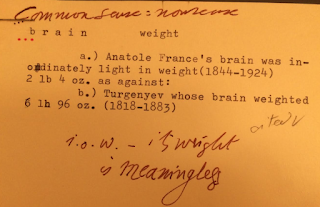 Common sense = nonsense
brain weight
a.) Anatole France's brain was in-
ordinately light in weight(1844-1924)
2 lb 4 oz. as against:
b.) Turgenyev whose brain weighted
6 lh 96 oz. (1818-1883)
i.o.w. - its weight
is meaningless